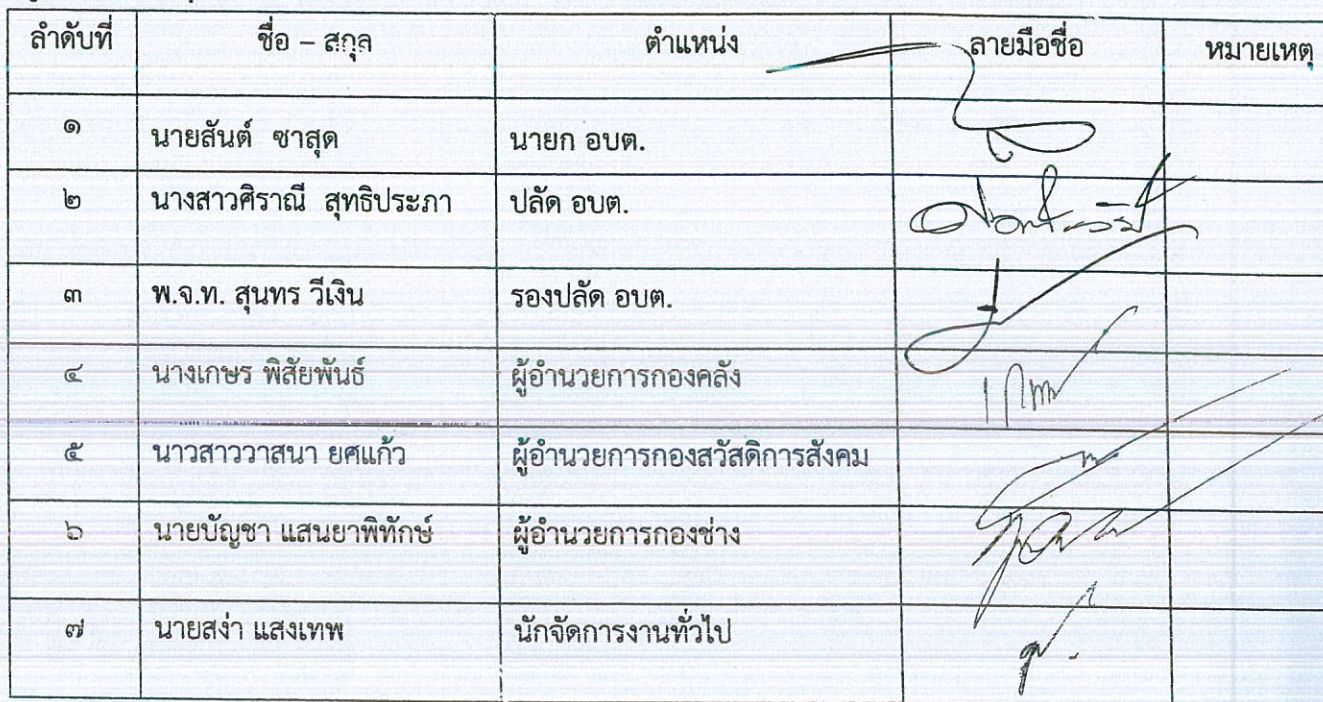 ลำดับที่ ชื่อ – สกุล ตำแหน่ง ลายมือชื่อ หมายเหตุ
๑ นายสันต์ ซาสุด นายก อบต.
๒ นางสาวศิราณี สุทธิประภา ปลัด อบต.
๓ พ.จ.ท. สุนทร วีเงิน รองปลัด อบต.
๔ นางเกษร พิสัยพันธ์ ผู้อำนวยการกองคลัง
๕ นาวสาววาสนา ยศแก้ว ผู้อำนวยการกองสวัสดิการสังคม
๖ นายบัญชา แสนยาพิทักษ์ ผู้อำนวยการกองช่าง
๗ นายสง่า แสงเทพ นักจัดการงานทั่วไป